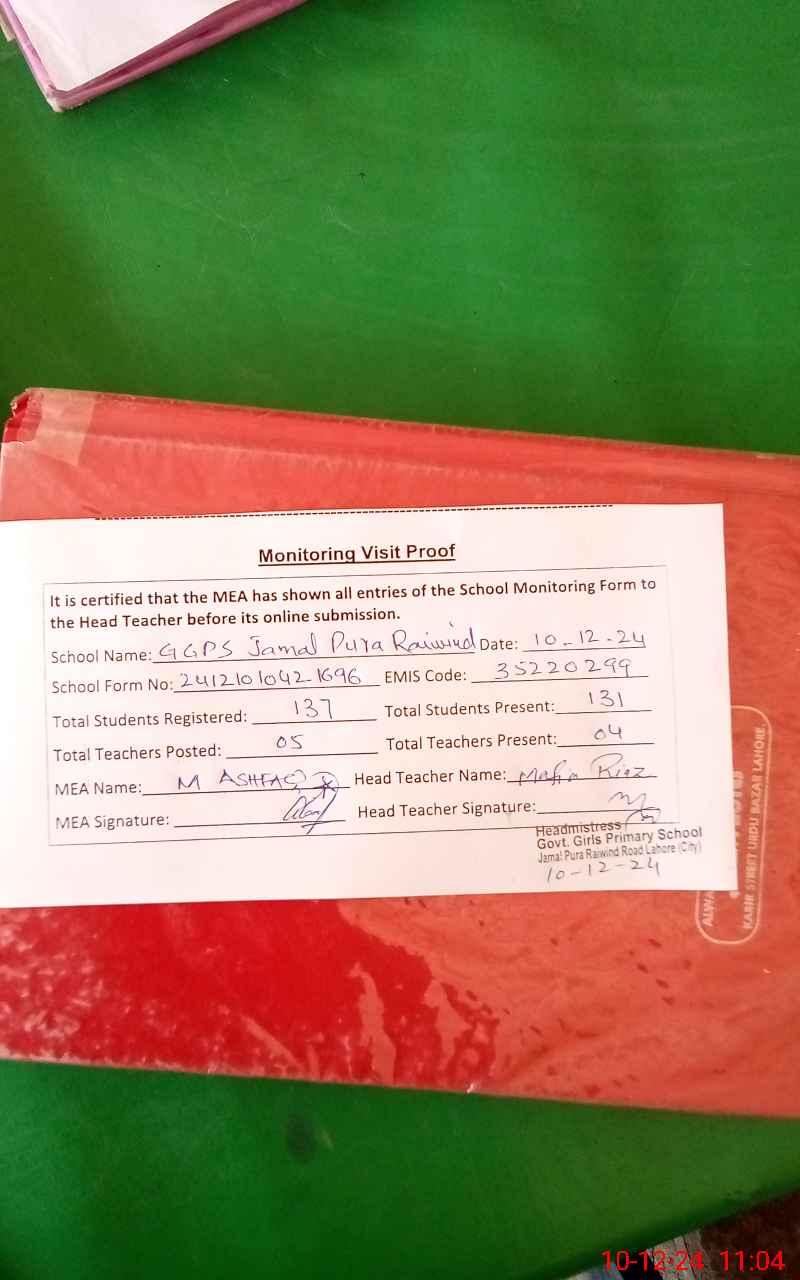 Monitoring Visit Proof
It is certified that the MEA has shown all entries of the School Monitoring Form to
the Head Teacher before its online submission.
School Name: GGPS Jamal Pura Raiwind Date: 10-12-24
School Form No: 24121010421696 EMIS Code: 35220299
Total Students Registered: 137 Total Students Present: 131
Total Teachers Posted: 05 Total Teachers Present: 04
MEA Name: M ASHFAQ Head Teacher Name: Riaz
MEA Signature: Head Teacher Signature:
Headmistress
Govt. Girls Primary School
Jamal Pura Raiwind Road Lahore (City)
10-12-24
KABIR STREET URDU BAZAR LAHORE
10-12-24 11:04